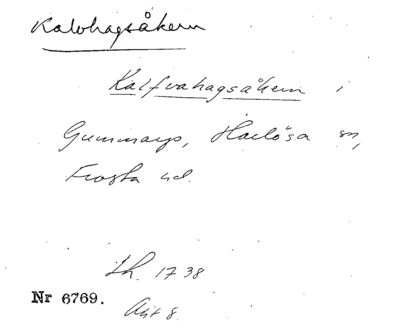 Kalvhagsåkern
Kalfvahagsåkern i
Gummarp, Harlösa sn,
Frosta hd.
Lh. 1738
Nr 6769.
Akt 8.